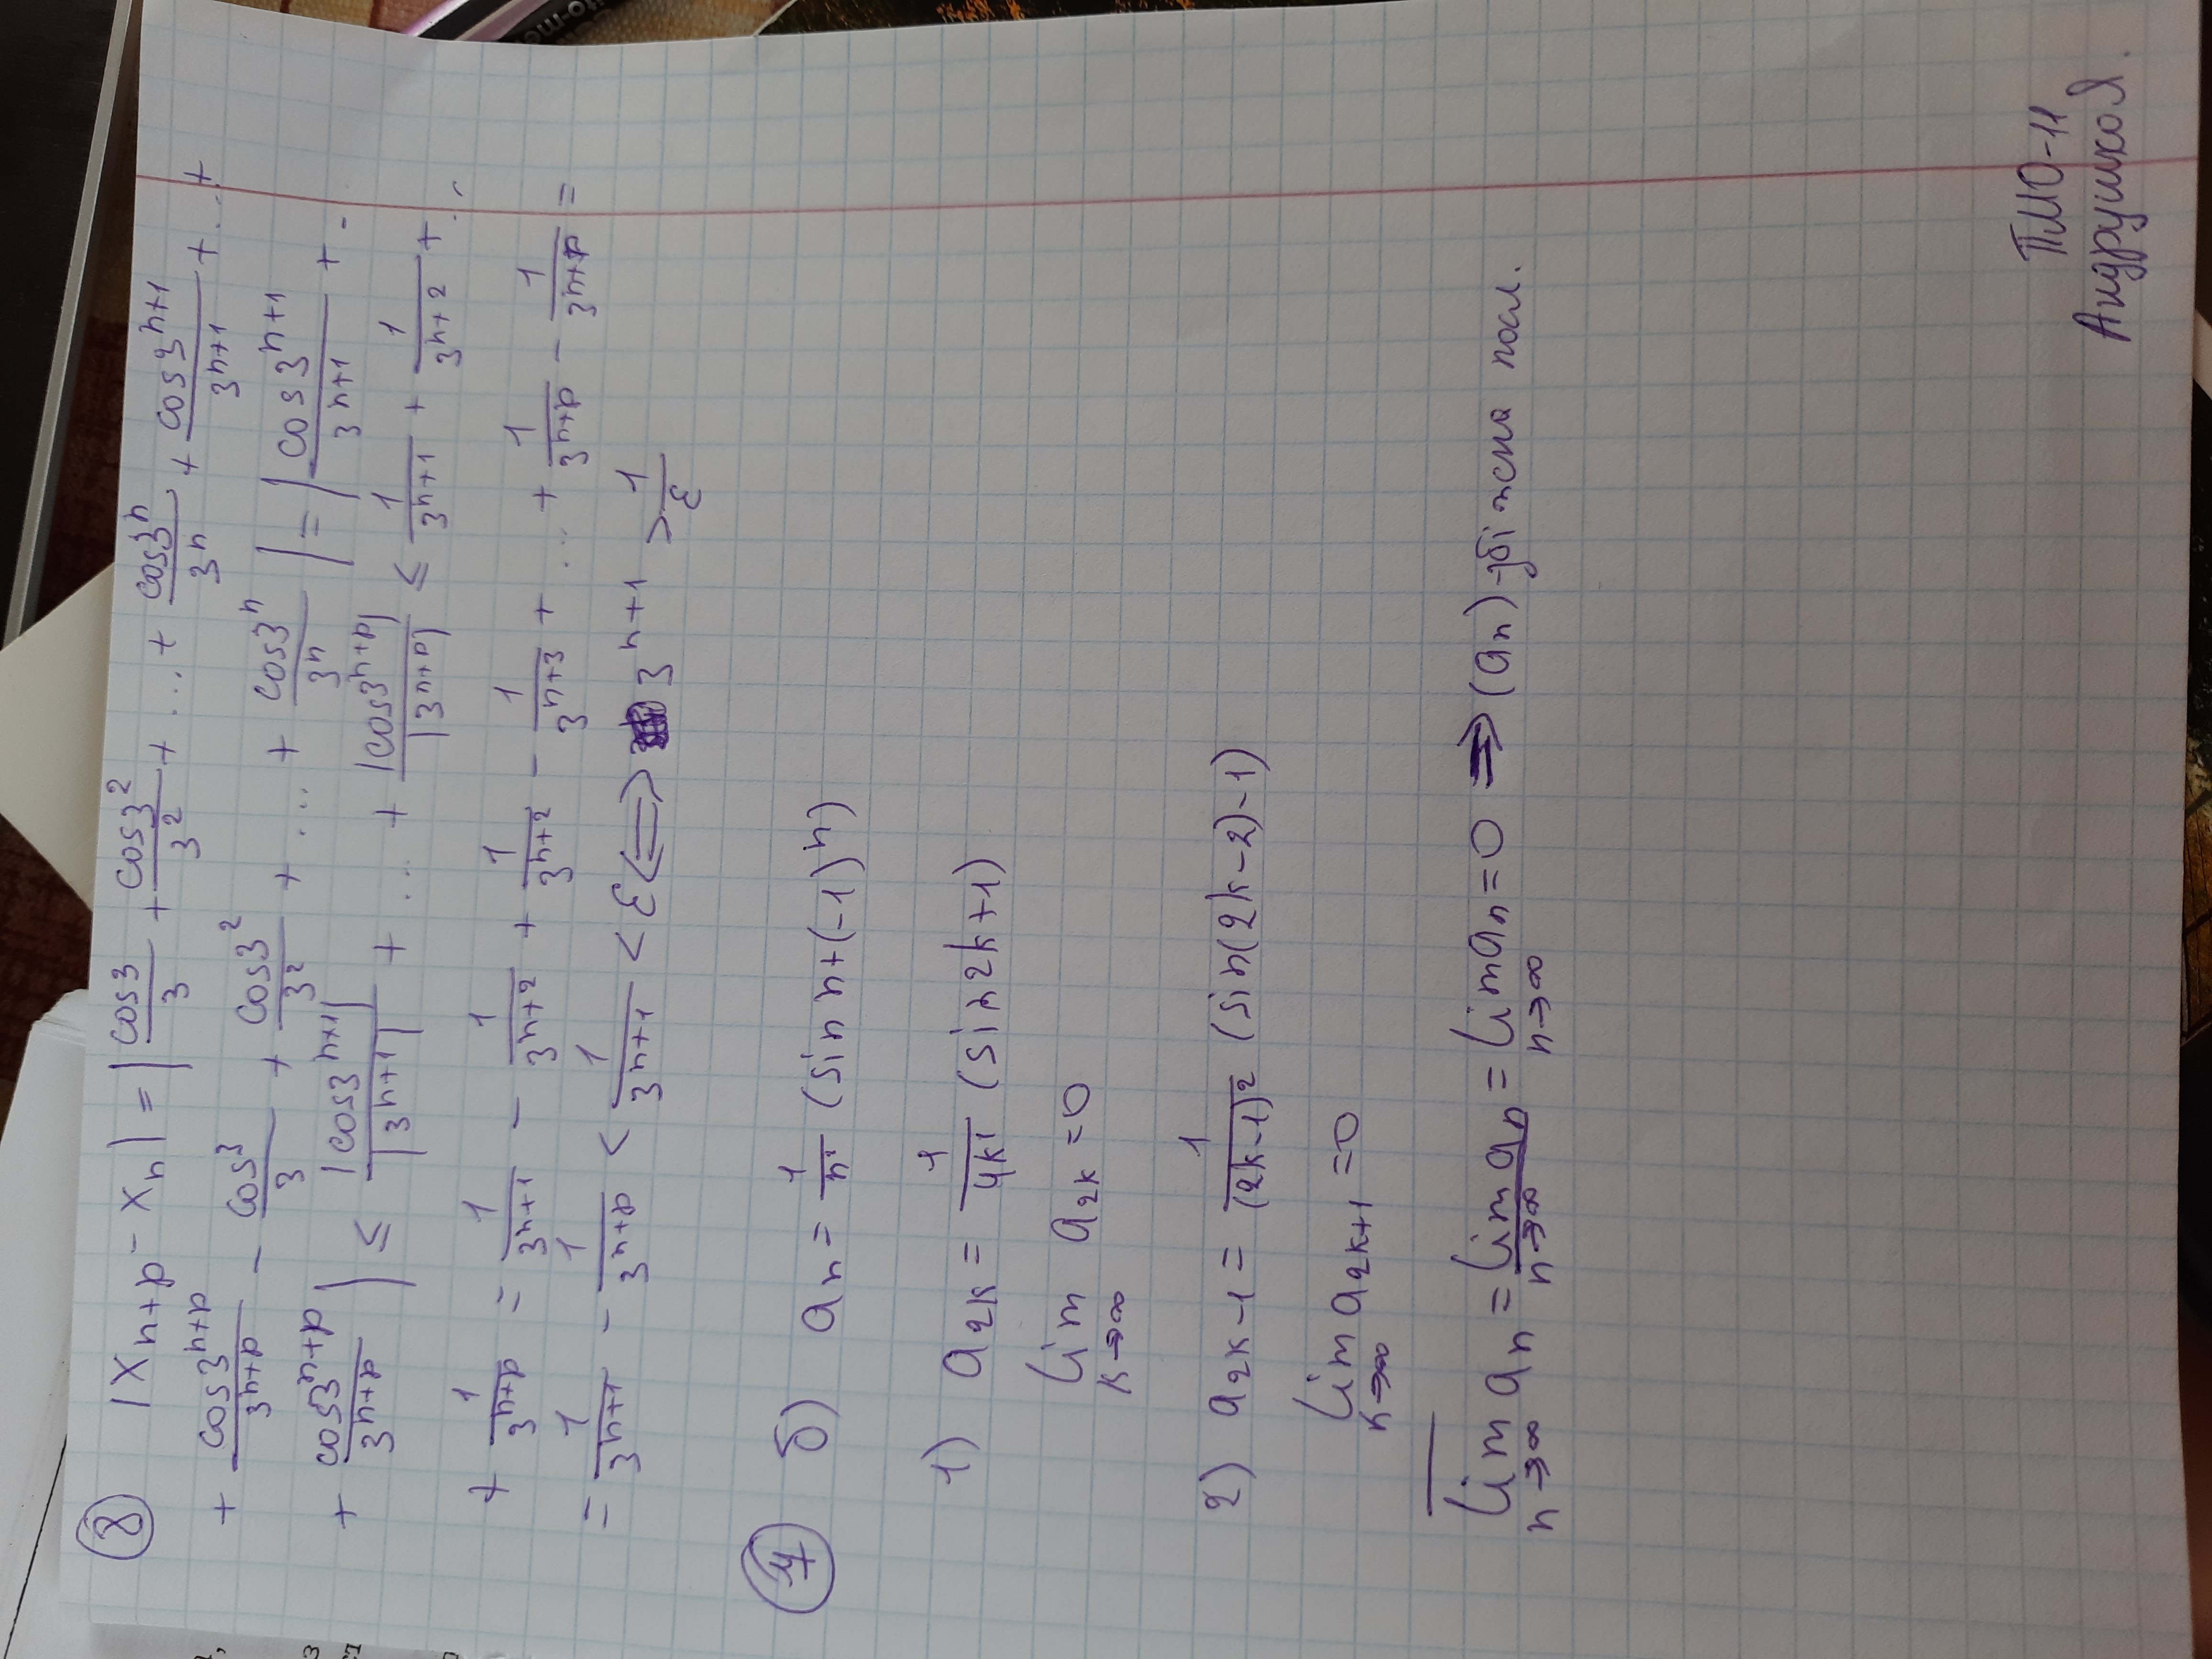 8 |x_{n+p} - x_n| = | cos3/3 + cos3^2/3^2 + ... + cos3^n/3^n + cos3^{n+1}/3^{n+1} + ... +
+ cos3^{n+p}/3^{n+p} - cos^3/3 + cos3^2/3^2 + ... + cos3^n/3^n | = | cos3^{n+1}/3^{n+1} + ..
+ cos3^{n+p}/3^{n+p} | ≤ |cos3^{n+1}|/|3^{n+1}| + ... + |cos3^{n+p}|/|3^{n+p}| ≤ 1/3^{n+1} + 1/3^{n+2} + ...
+ 1/3^{n+p} = 1/3^{n+1} - 1/3^{n+2} + 1/3^{n+2} - 1/3^{n+3} + ... + 1/3^{n+p} - 1/3^{n+p} =
= 1/3^{n+1} - 1/3^{n+p} < 1/3^{n+1} < ε <=> 3^{n+1} > 1/ε
б) a_n = 1/n² (sin n + (-1)^n)
1) a_{2k} = 1/4k² (sin2k+1)
lim_{k→∞} a_{2k} = 0
2) a_{2k-1} = 1/(2k-1)^2 (sin(2k-2)-1)
lim_{k→∞} a_{2k+1} = 0
\overline{lim}_{n→∞} a_n = \underline{lim}_{n→∞} a_n = lim_{n→∞} a_n = 0 => (a_n) - збіжна посл.
ПМО-11
Андрушко Я.